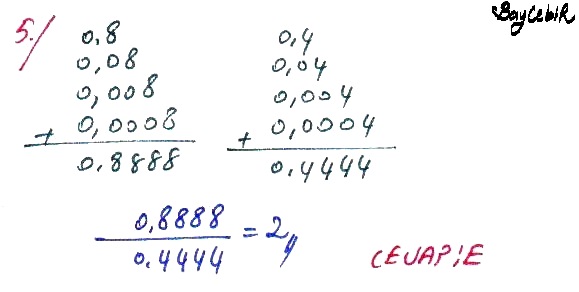 BayCebiR
5./
0,8
0,08
0,008
+ 0,0008
0,8888
0,4
0,04
0,004
+ 0,0004
0,4444
0,8888
0.4444
= 2//
CEVAP:E